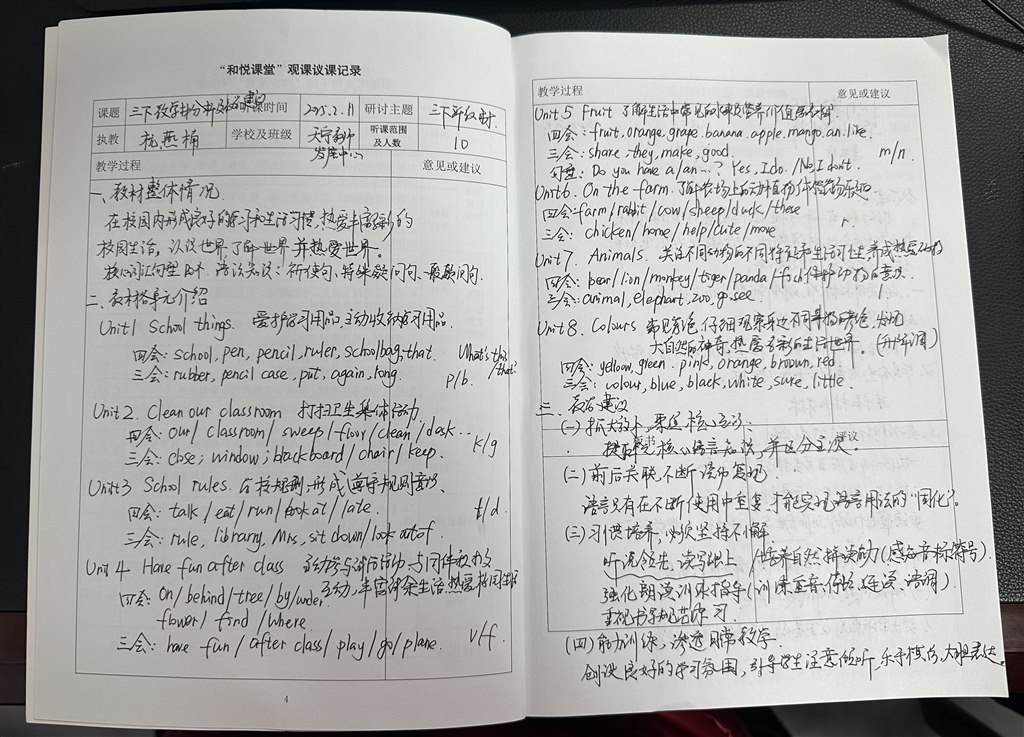 “和悦课堂”观课议课记录
课题 三下教学教材分析及教学建议 听课时间 2025.2.11 研讨主题 三下解读教材
执教 杭燕楠 学校及班级 天宁教师发展中心 听课范围及人数 10
教学过程 意见或建议
一、教材整体情况
在校园内形成良好的学习和生活习惯,热爱丰富多彩的
校园生活。认识世界了解世界并热爱世界。
核心词汇句型 语法知识:祈使句、特殊疑问句、一般疑问句
二、教材各单元介绍
Unit1 School things. 爱护学习用品,主动收纳学习用品.
四会: school, pen, pencil, ruler, schoolbag, that. What's this/that?
三会: rubber, pencil case, put, again, long. p/b.
Unit 2. Clean our classroom 打扫卫生集体行动
四会: our/ classroom/ sweep/ floor/ clean/ desk...
三会: close; window; blackboard/ chair/ keep. k/g
Unit3 School rules. 在校规则,形成遵守规则意识
四会: talk/ eat/ run/ look at/ late. t/d.
三会: rule, library, Mrs, sit down/ look out of
Unit 4 Have fun after class 主动参与课后活动 与同伴积极
互动,丰富课余生活,热爱校园生活
四会: on/ behind/ tree/ by/ under.
flower/ find/ where.
三会: have fun/ after class/ play/ go/ plane. v/f.
4
教学过程 意见或建议
Unit 5 Fruit 了解生活中常见的水果及营养价值
四会: fruit, orange, grape, banana, apple, mango, an, like.
三会: share, they, make, good. m/n.
句型: Do you have a/an...? Yes, I do. /No, I don't.
Unit 6. On the farm. 了解农场上的动植物
四会: farm/ rabbit/ cow/ sheep/ duck/ these
三会: chicken/ home/ help/ cute/ move r.
Unit 7 Animals. 关注不同动物的不同特征和生活习性 养成热爱动物
四会: bear/ lion/ monkey/ tiger/ panda/ fish 保护动物的意识
三会: animal, elephant, zoo, go see. l.
Unit 8. Colours 常见颜色,仔细观察身边不同事物的颜色,发现
大自然的神奇,热爱多彩的生活世界。(升降调)
四会: yellow, green, pink, orange, brown, red
三会: colour, blue, black, white, sure, little.
三、教学建议
(一)抓大放小,聚焦核心知识:
核心语言知识,并区分主次。
议
(二)前后关联,不断滚动复现
语言只有在不断使用中重复,才能实现语言用法的“固化”。
(三)习惯培养,必须坚持不懈
听说领先,读写跟上 /培养自然拼读能力(感知音标符号).
强化朗读训练指导(训练重音、停顿、连读、语调)
重视书写规范练习.
(四)能力训练,渗透日常教学
创设良好的学习氛围,引导学生注意倾听,乐于模仿,大胆表达。